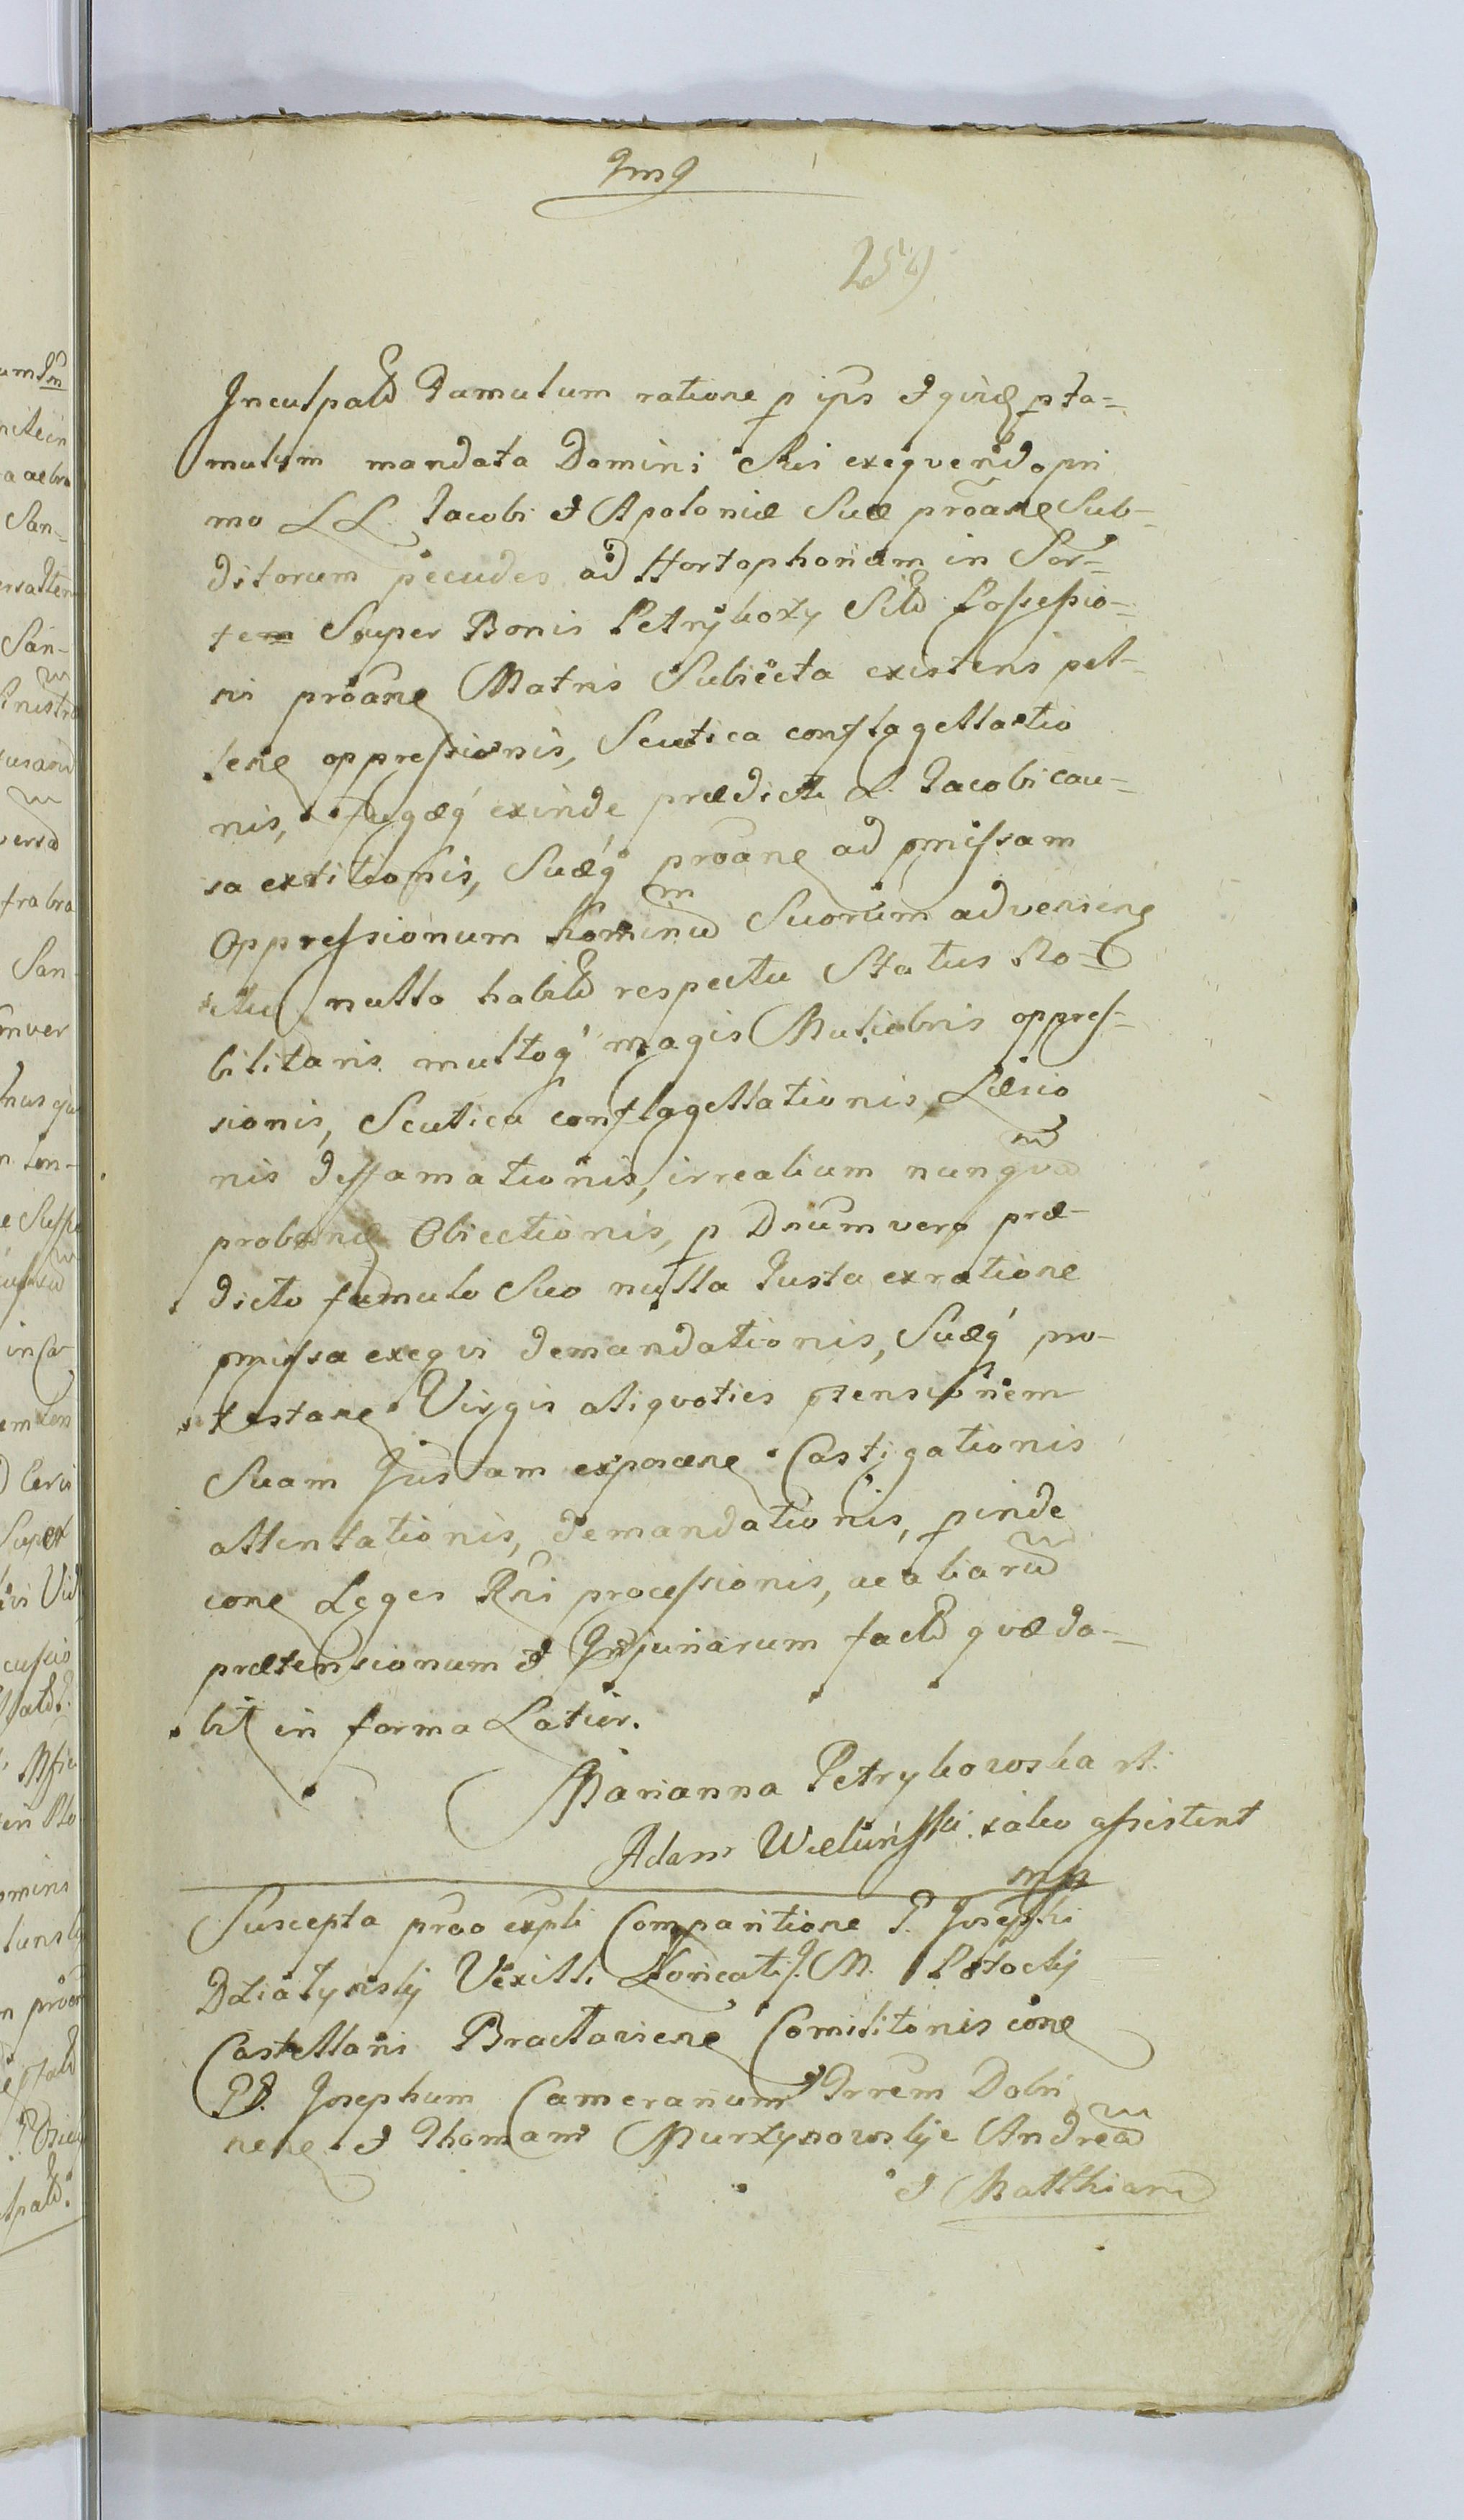 259
Inculpatũ Famulum ratione p ips & quidẽ p fa-
mulum mandata Domini Sui exequendo pri
mo LL. Jacobi & Apoloniæ Suæ proãne Sub-
ditorum pecudes ad Hortophorium in Sor-
tem Super Bonis Petrykozy Sitũ Possessio-
nis proãne Matris Subiecta existens pel-
lene oppressionis, Scutica conflagellatio
nis, fugæq́ exinde prædicti L. Jacobi cau-
sa extitionis, Suæq́ proãne ad pmissam
Oppressionum hominũ Suorum advenienẽ
nullo habitũ respectu Status No-
bilitaris multoq́ magis Muliebris oppres-
sionis, Scutica conflagellationis Læsio
nis diffamationis, irrealium nunquã
probanẽ Obiectionis, p Dnum vero præ-
dicto famulo Suo nulla Justa ex ratione
pmissa exequi demandationis, Suæq́ pro-
testane Virgis aliquoties ptensionem
Suam Justam exponenẽ Castigationis
attentationis, demandationis, pinde
conẽ Leges Rni processionis, ac aliarũ
prætensionum & Injuriarum factũ quæ da-
bit in forma Latior.
Marianna Petrykowska
Adam Wieluński jako assistent
mp
Suscepta prõo expti Comparitione G. Josephi
Działyński Vexilli Loricati J. M. Potocky
Castellani Braclaviene Comilitonis cone
GG. Josephum Camerarium Trrem Dobri
nenẽ & Thomam Murzynowskije Andreã
& Matthiam